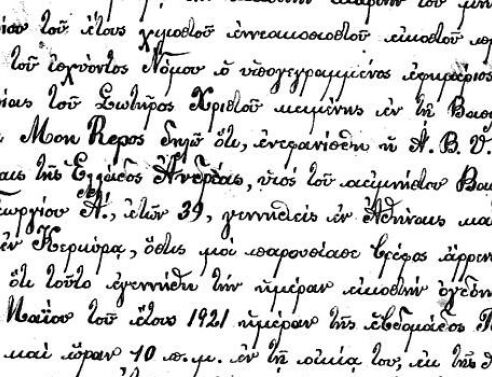 τοῦ ἔτους χιλιοστοῦ ἐννεακοσιοστοῦ εἰκοστοῦ
τοῦ ἰσχύοντος Νόμου ὁ ὑπογεγραμμένος ἐφημέριος
τοῦ Σωτῆρος Χριστοῦ κειμένης ἐν τῇ
Mon Repos δηλῶ ὅτι, ἐνεφανίσθη ἡ Α. Β. Υ.
τῆς Ἑλλάδος Ἀνδρέας, υἱός τοῦ ἀειμνήστου
Γεωργίου Α., ἐτῶν 39, γεννηθείς ἐν Ἀθήναις κα
ἐν Κερκύρᾳ, ὅστις μοί παρουσίασε βρέφος ἄρρεν
ὅτι τοῦτο ἐγεννήθη τήν ἡμέραν εἰκοστήν ὀγδόη
Μαΐου τοῦ ἔτους 1921 ἡμέραν τῆς ἑβδομάδος
καί ὥραν 10 π.μ. ἐν τῇ οἰκίᾳ του, ἐκ τῆς